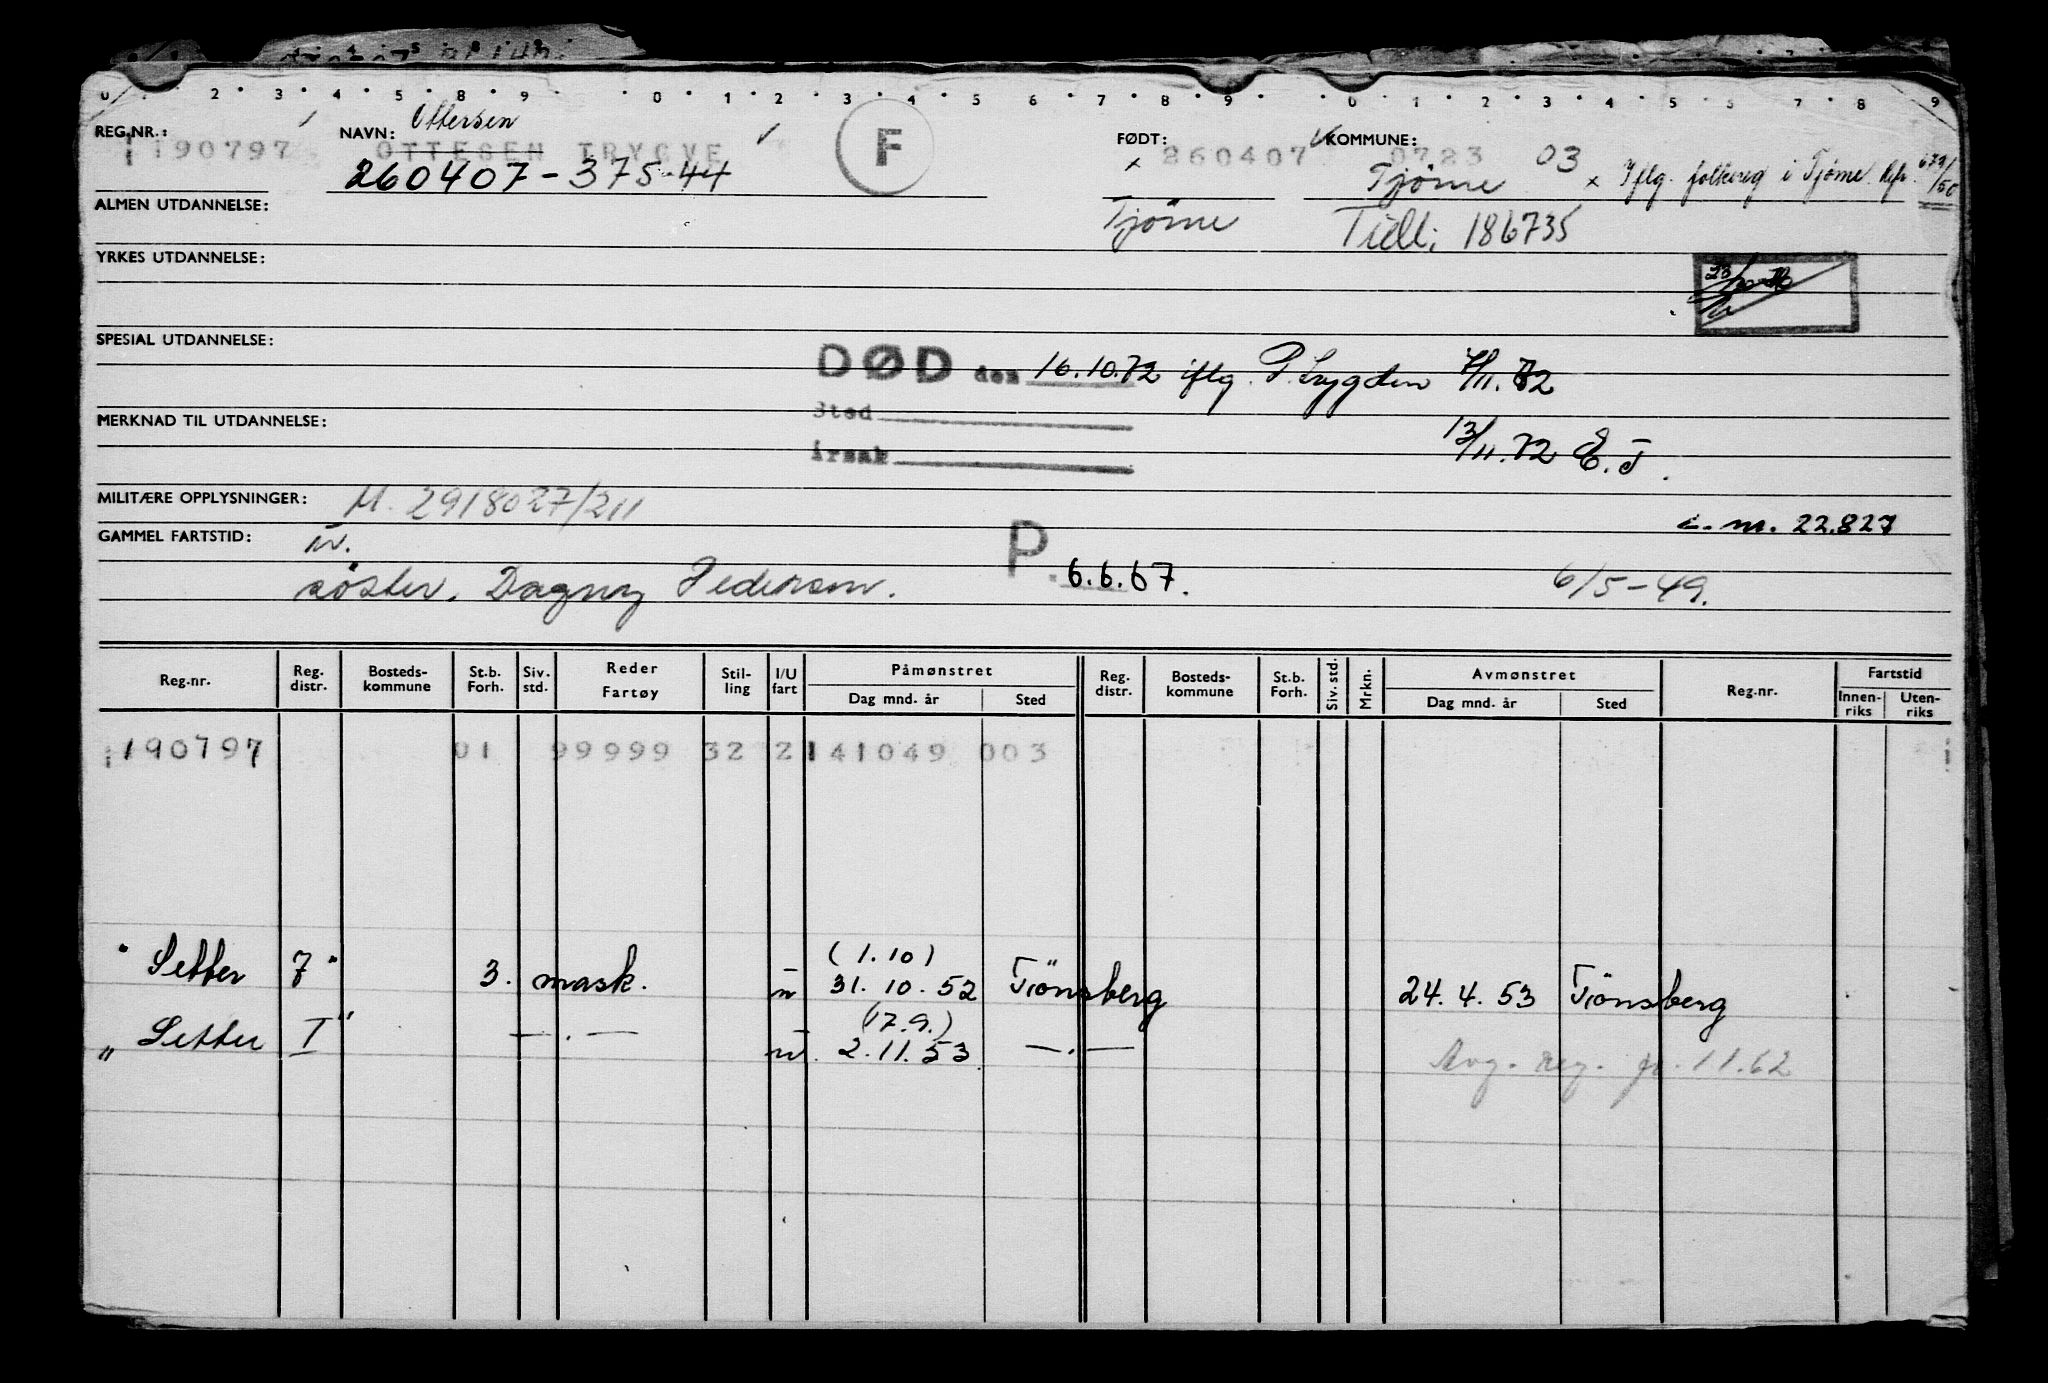 0 2 3 4 5 8 9 0 1 2 3 4 5 6 7 8 9 0 1 2 3 4 5 6 7 8 9
Ottersen
REG.NR.: NAVN: F FØDT: KOMMUNE:
190797 OTTESEN TRYGVE × 260407 0723 03
260407-375-44 Tjöme × Iflg. folkereg i Tjöme. 679/50
ALMEN UTDANNELSE: Tjöme Tidl: 186735
YRKES UTDANNELSE:
SPESIAL UTDANNELSE:
DØD den 16.10.72 iflg. P. Trygden 7/11.72
Sted
MERKNAD TIL UTDANNELSE: 13/11.72 E.T.
Årsak
MILITÆRE OPPLYSNINGER: M. 2918027/211
c.m. 22.827
GAMMEL FARTSTID: P. 6.6.67.
söster. Dagny Pedersen. 6/5-49.
Reg.nr. Reg. distr. Bosteds-kommune St.b. Forh. Siv. std. Reder Fartøy Stil-ling I/U fart Påmønstret Dag mnd. år Sted Reg. distr. Bosteds-kommune St.b. Forh. Siv. std. Mrkn. Avmønstret Dag mnd. år Sted Reg.nr. Fartstid Innen-riks Uten-riks
190797 01 99999 32 2 141049 003
(1.10)
"Setter 7" 3. mask. u 31.10.52 Tönsberg 24.4.53 Tönsberg
(17.9.)
"Setter I" —.— u. 2.11.53 —.—
Avg. reg. pr. 11.62